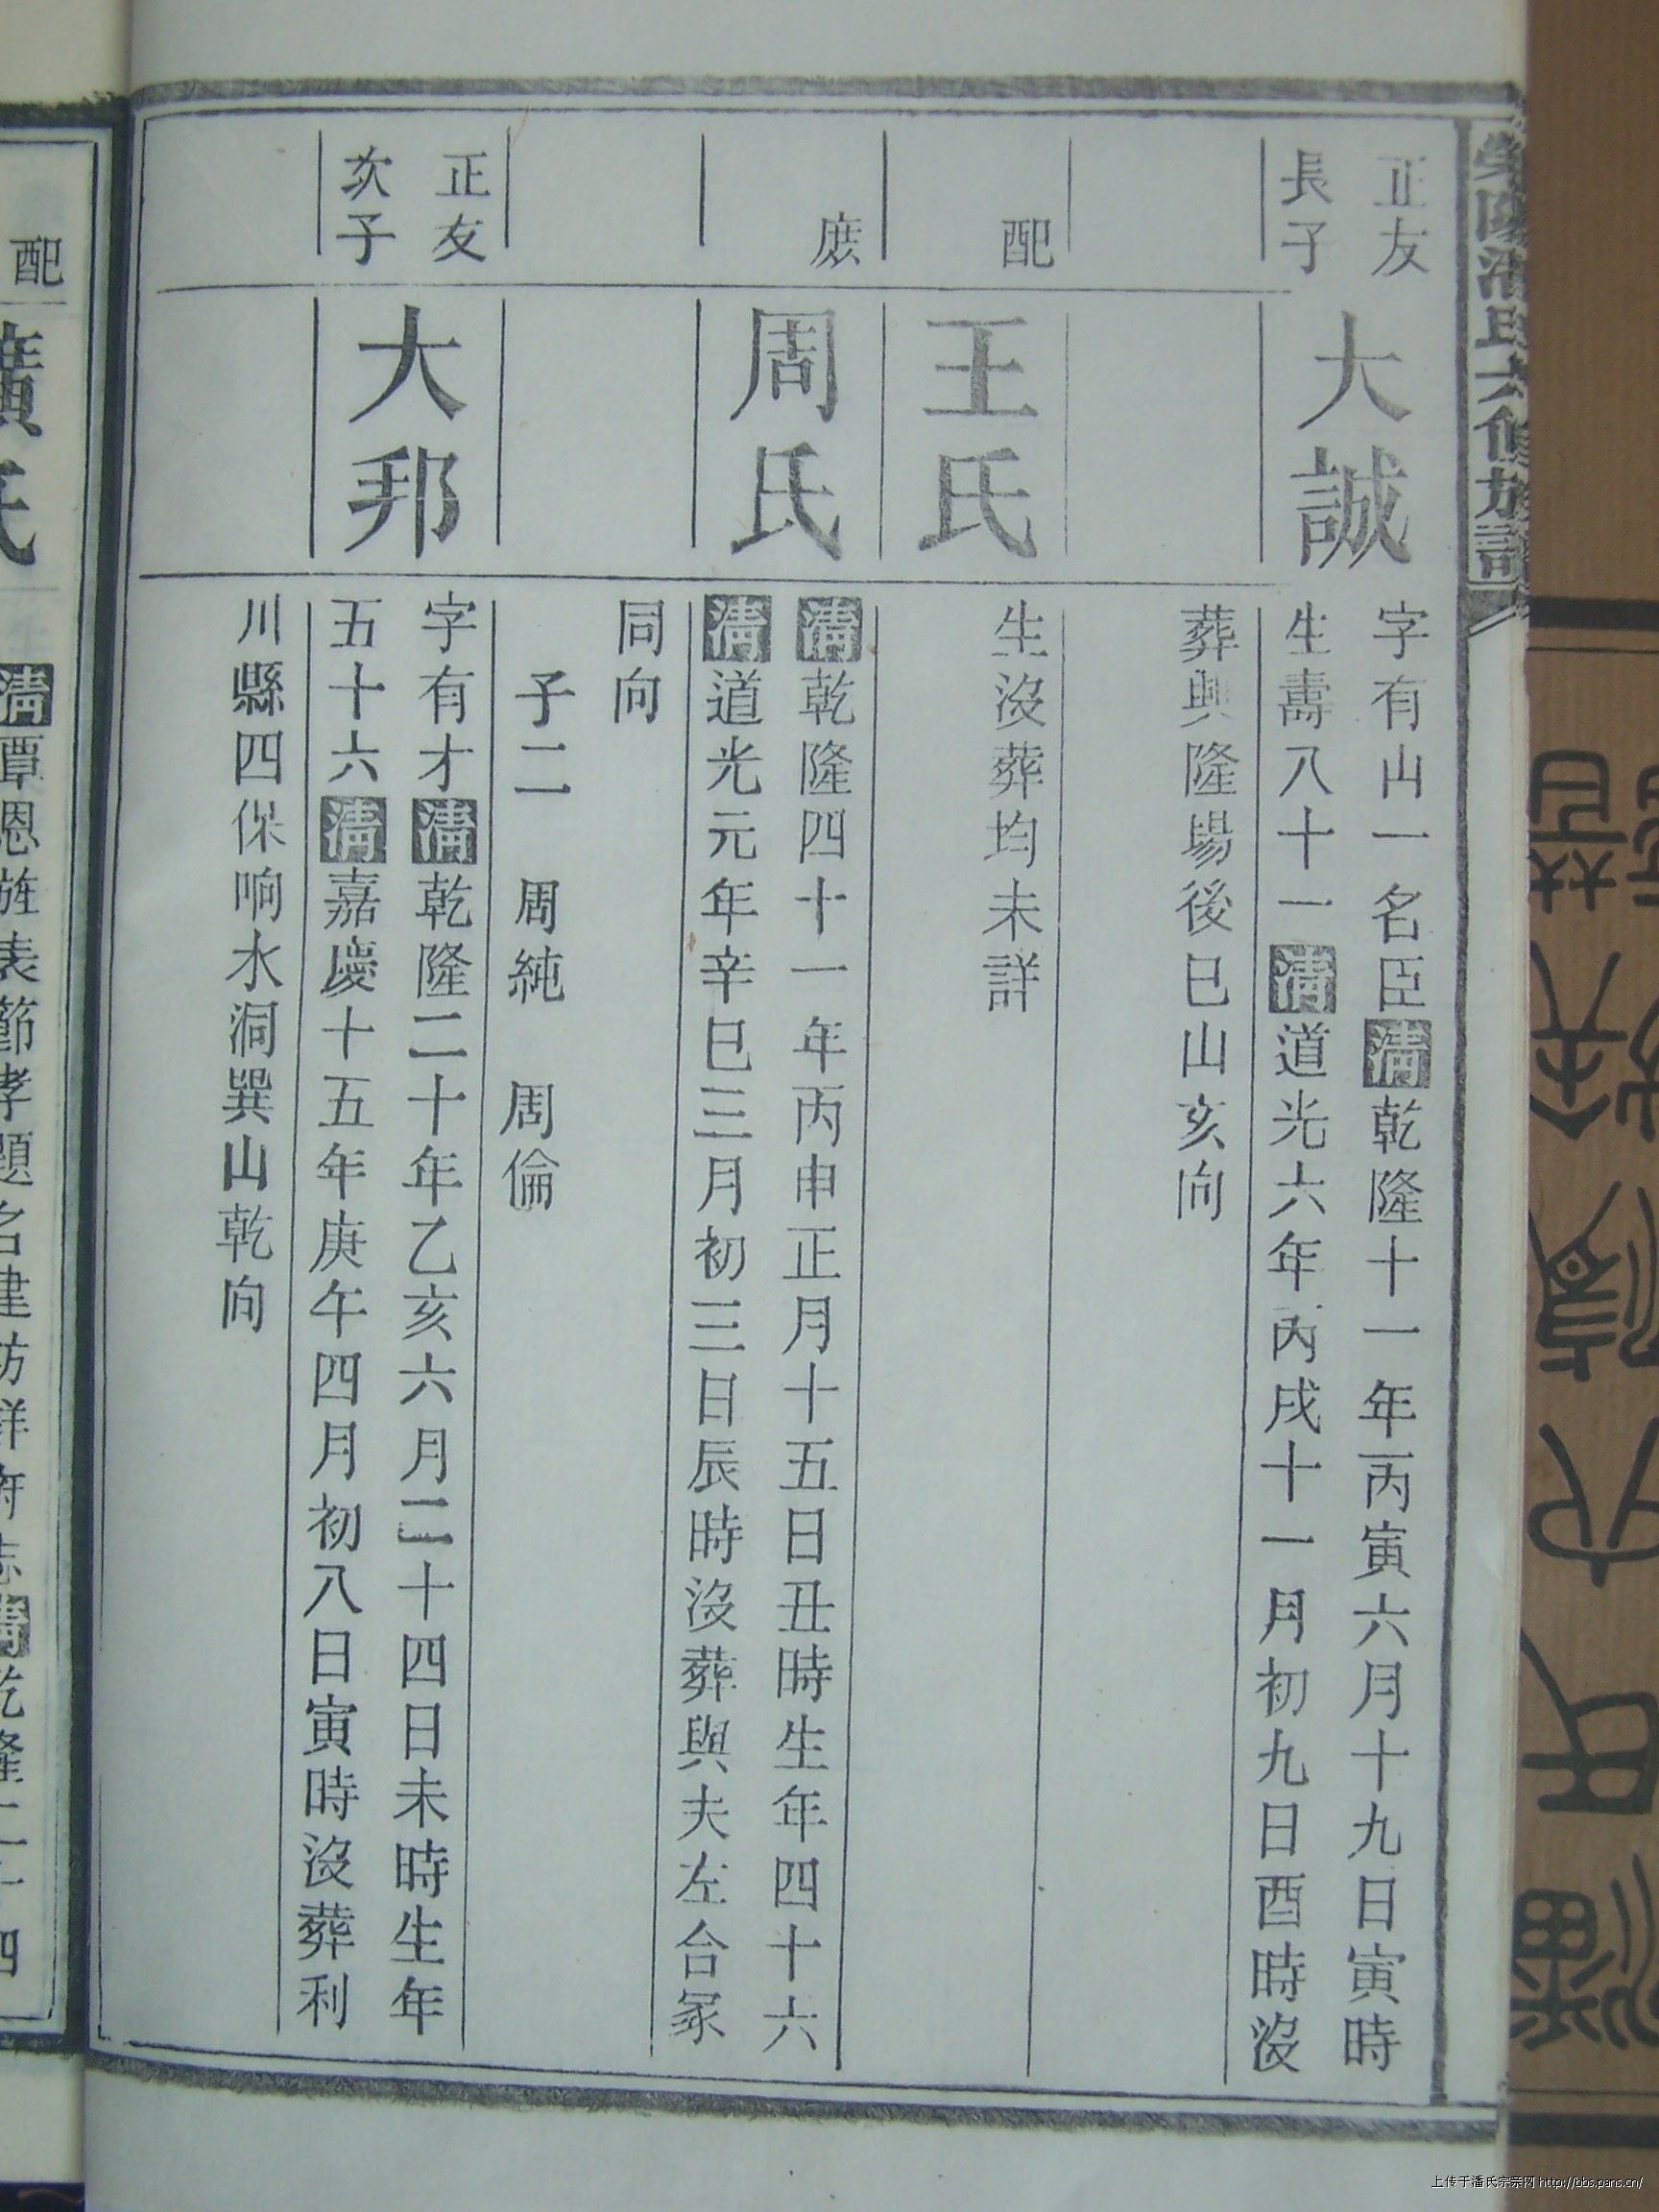 滎陽潘氏六修族譜
正友
長子
大誠
字有山一名臣清乾隆十一年丙寅六月十九日寅時
生壽八十一清道光六年丙戌十一月初九日酉時沒
葬興隆場後巳山亥向
配
王氏
生沒葬均未詳
庶
周氏
清乾隆四十一年丙申正月十五日丑時生年四十六
清道光元年辛巳三月初三日辰時沒葬與夫左合冢
同向
子二 周純 周倫
正友
次子
大邦
字有才清乾隆二十年乙亥六月二十四日未時生年
五十六清嘉慶十五年庚午四月初八日寅時沒葬利
川縣四保响水洞巽山乾向
配
氏
清覃恩旌表節孝題名建坊詳府志清乾隆二十四
上传于潘氏宗亲网 http://bbs.pans.cn/